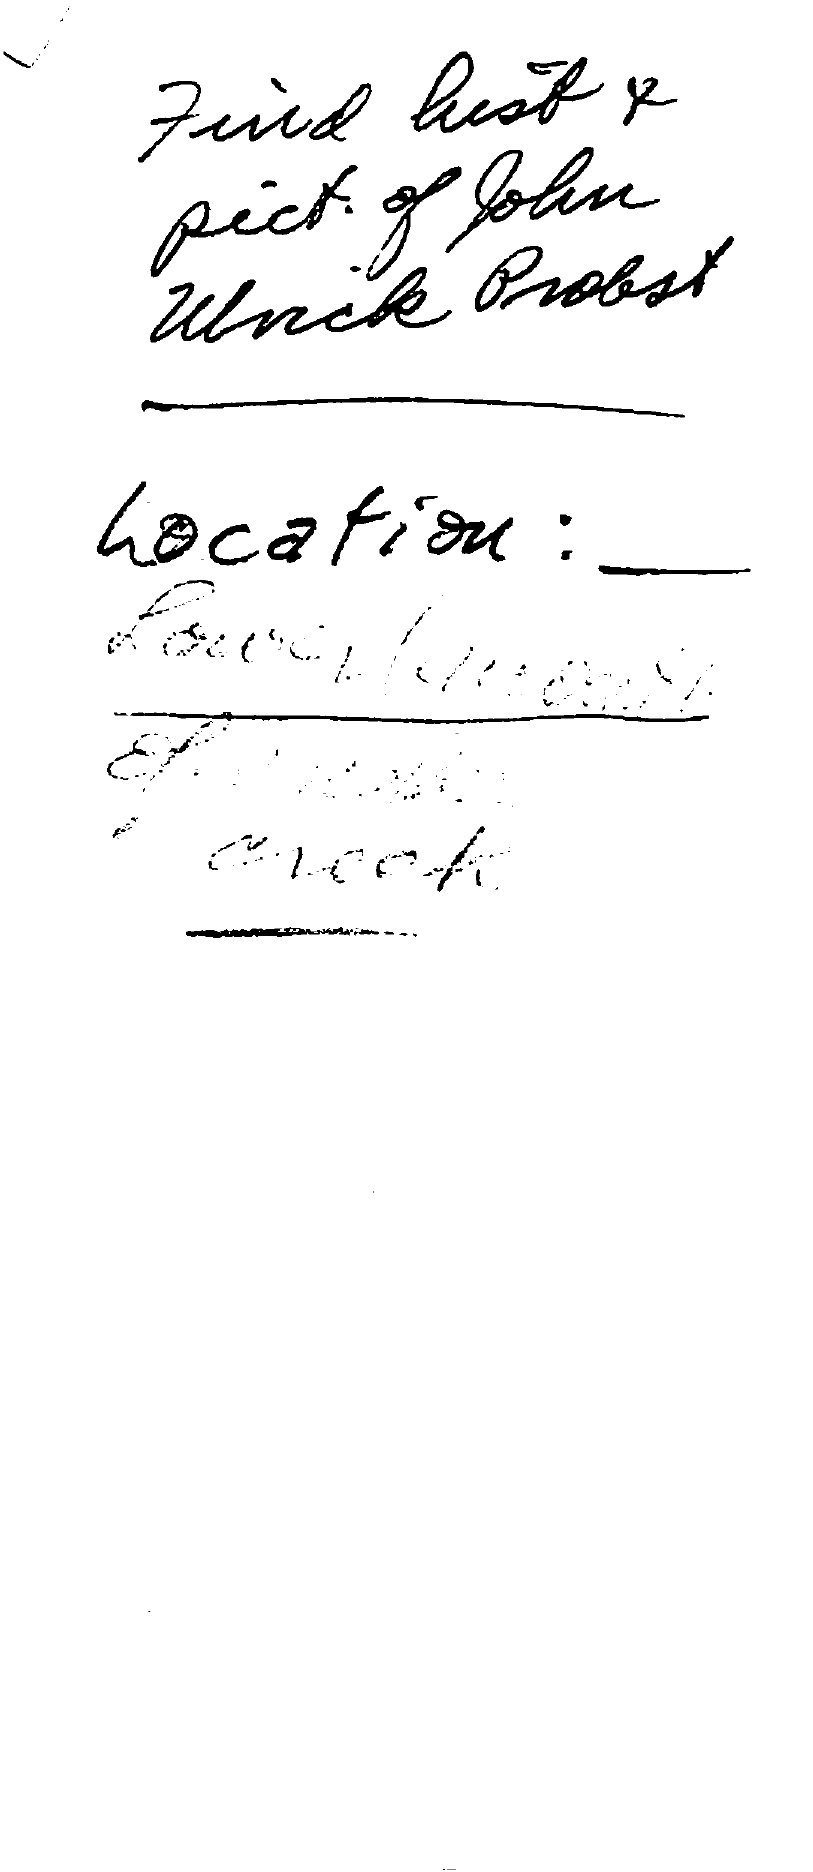 Find hist &
pict. of John
Ulrick Probst
Location:
Lower
of
creek